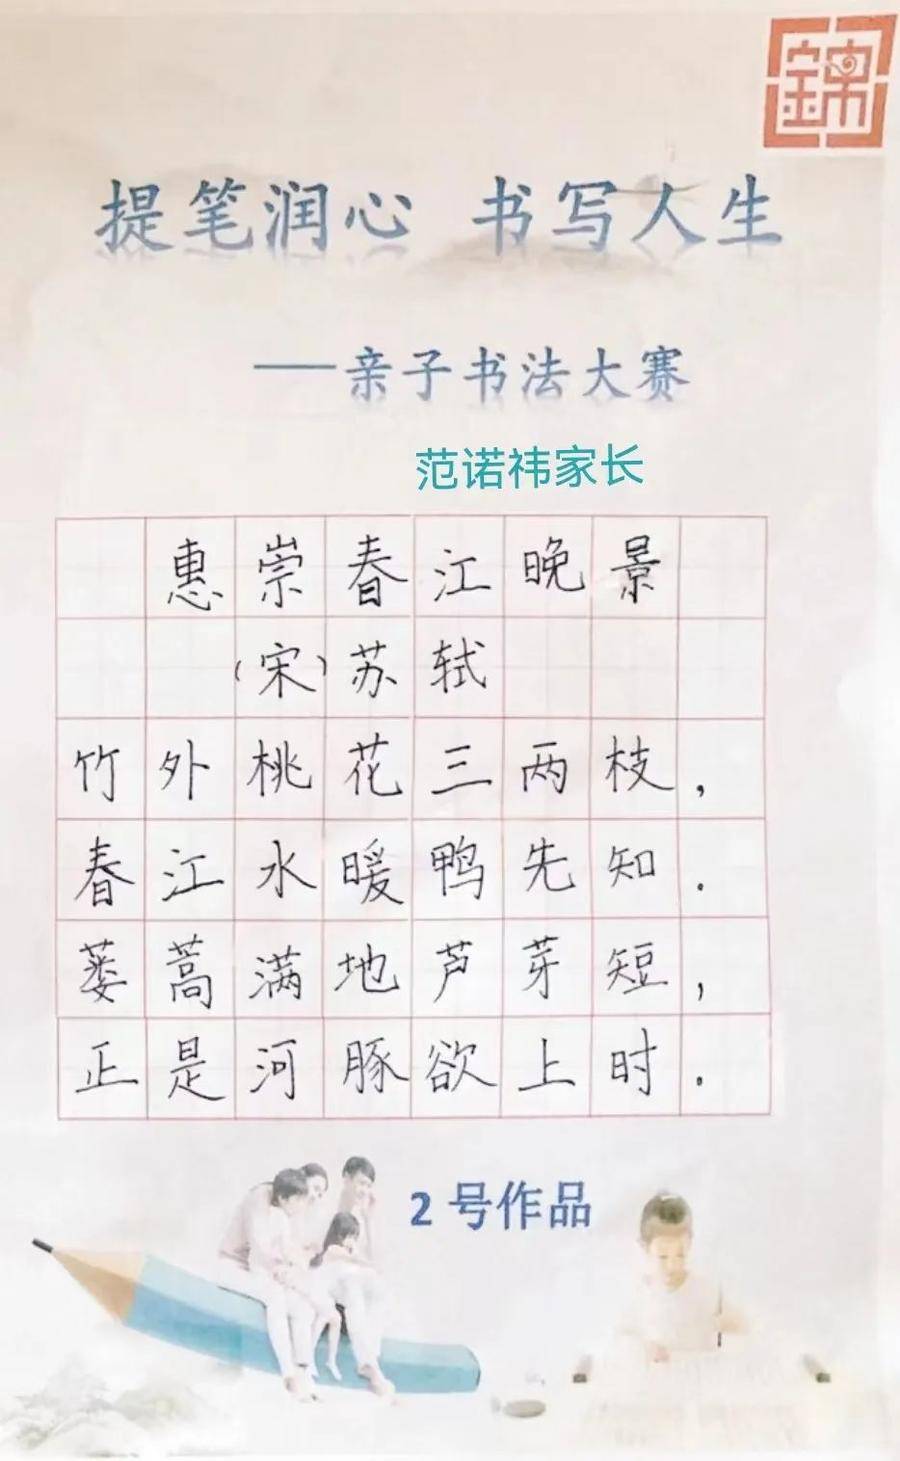 錦
提笔润心 书写人生
——亲子书法大赛
范诺祎家长
惠崇春江晚景
(宋)苏轼
竹外桃花三两枝，
春江水暖鸭先知.
蒌蒿满地芦芽短，
正是河豚欲上时.
2号作品